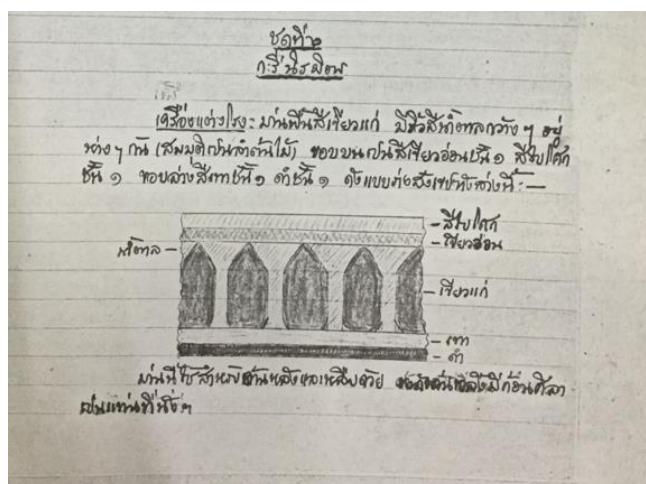 ชุดที่๖
เครื่องแต่งโรง: ม่านพื้นสีเขียวแก่ มีริ้วสีน้ำตาลกว้าง ๆ อยู่
ห่าง ๆ กัน (สมมุติเป็นลำต้นไม้) ขอบบนเป็นสีเขียวอ่อนชั้น ๑ สีใบโศก
ชั้น ๑ ขอบล่างสีเทาชั้น ๑ ดำชั้น ๑ ดังแบบอย่างสังเขปข้างล่างนี้: —
สีใบโศก
น้ำตาล
เขียวอ่อน
เขียวแก่
เทา
ดำ
ม่านนี้ใช้สำหรับกั้นหลังและหลืบด้วย มีก้อนศิลา
เป็นแท่นที่นั่งฯ